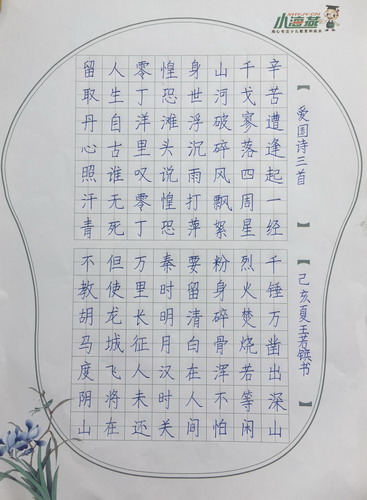 小海燕
【爱国诗三首】
辛苦遭逢起一经
千戈寥落四周星
山河破碎风飘絮
身世浮沉雨打萍
惶恐滩头说惶恐
零丁洋里叹零丁
人生自古谁无死
留取丹心照汗青
千锤万凿出深山
烈火焚烧若等闲
粉身碎骨浑不怕
要留清白在人间
秦时明月汉时关
万里长征人未还
但使龙城飞将在
不教胡马度阴山
【己亥夏王芳书】